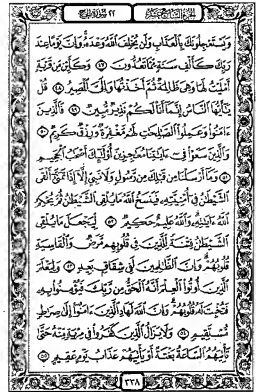 الجزء السابع عشر ٢٢ سورة الحج
ويستعجلونك بالعذاب ولن يخلف الله وعده وإن يوما عند
ربك كألف سنة مما تعدون ٤٧ وكأين من قرية
أمليت لها وهي ظالمة ثم أخذتها وإلي المصير ٤٨ قل
يأيها الناس إنما أنا لكم نذير مبين ٤٩ فالذين
ءامنوا وعملوا الصلحت لهم مغفرة ورزق كريم ٥٠
والذين سعوا في ءايتنا معجزين أولئك أصحب الجحيم
٥١ وما أرسلنا من قبلك من رسول ولا نبي إلا إذا تمنى ألقى
الشيطن في أمنيته فينسخ الله ما يلقي الشيطن ثم يحكم
الله ءايته والله عليم حكيم ٥٢ ليجعل ما يلقي
الشيطن فتنة للذين في قلوبهم مرض والقاسية
قلوبهم وإن الظلمين لفي شقاق بعيد ٥٣ وليعلم
الذين أوتوا العلم أنه الحق من ربك فيؤمنوا به
فتخبت له قلوبهم وإن الله لهاد الذين ءامنوا إلى صرط
مستقيم ٥٤ ولا يزال الذين كفروا في مرية منه حتى
تأتيهم الساعة بغتة أو يأتيهم عذاب يوم عقيم ٥٥
٣٣٨